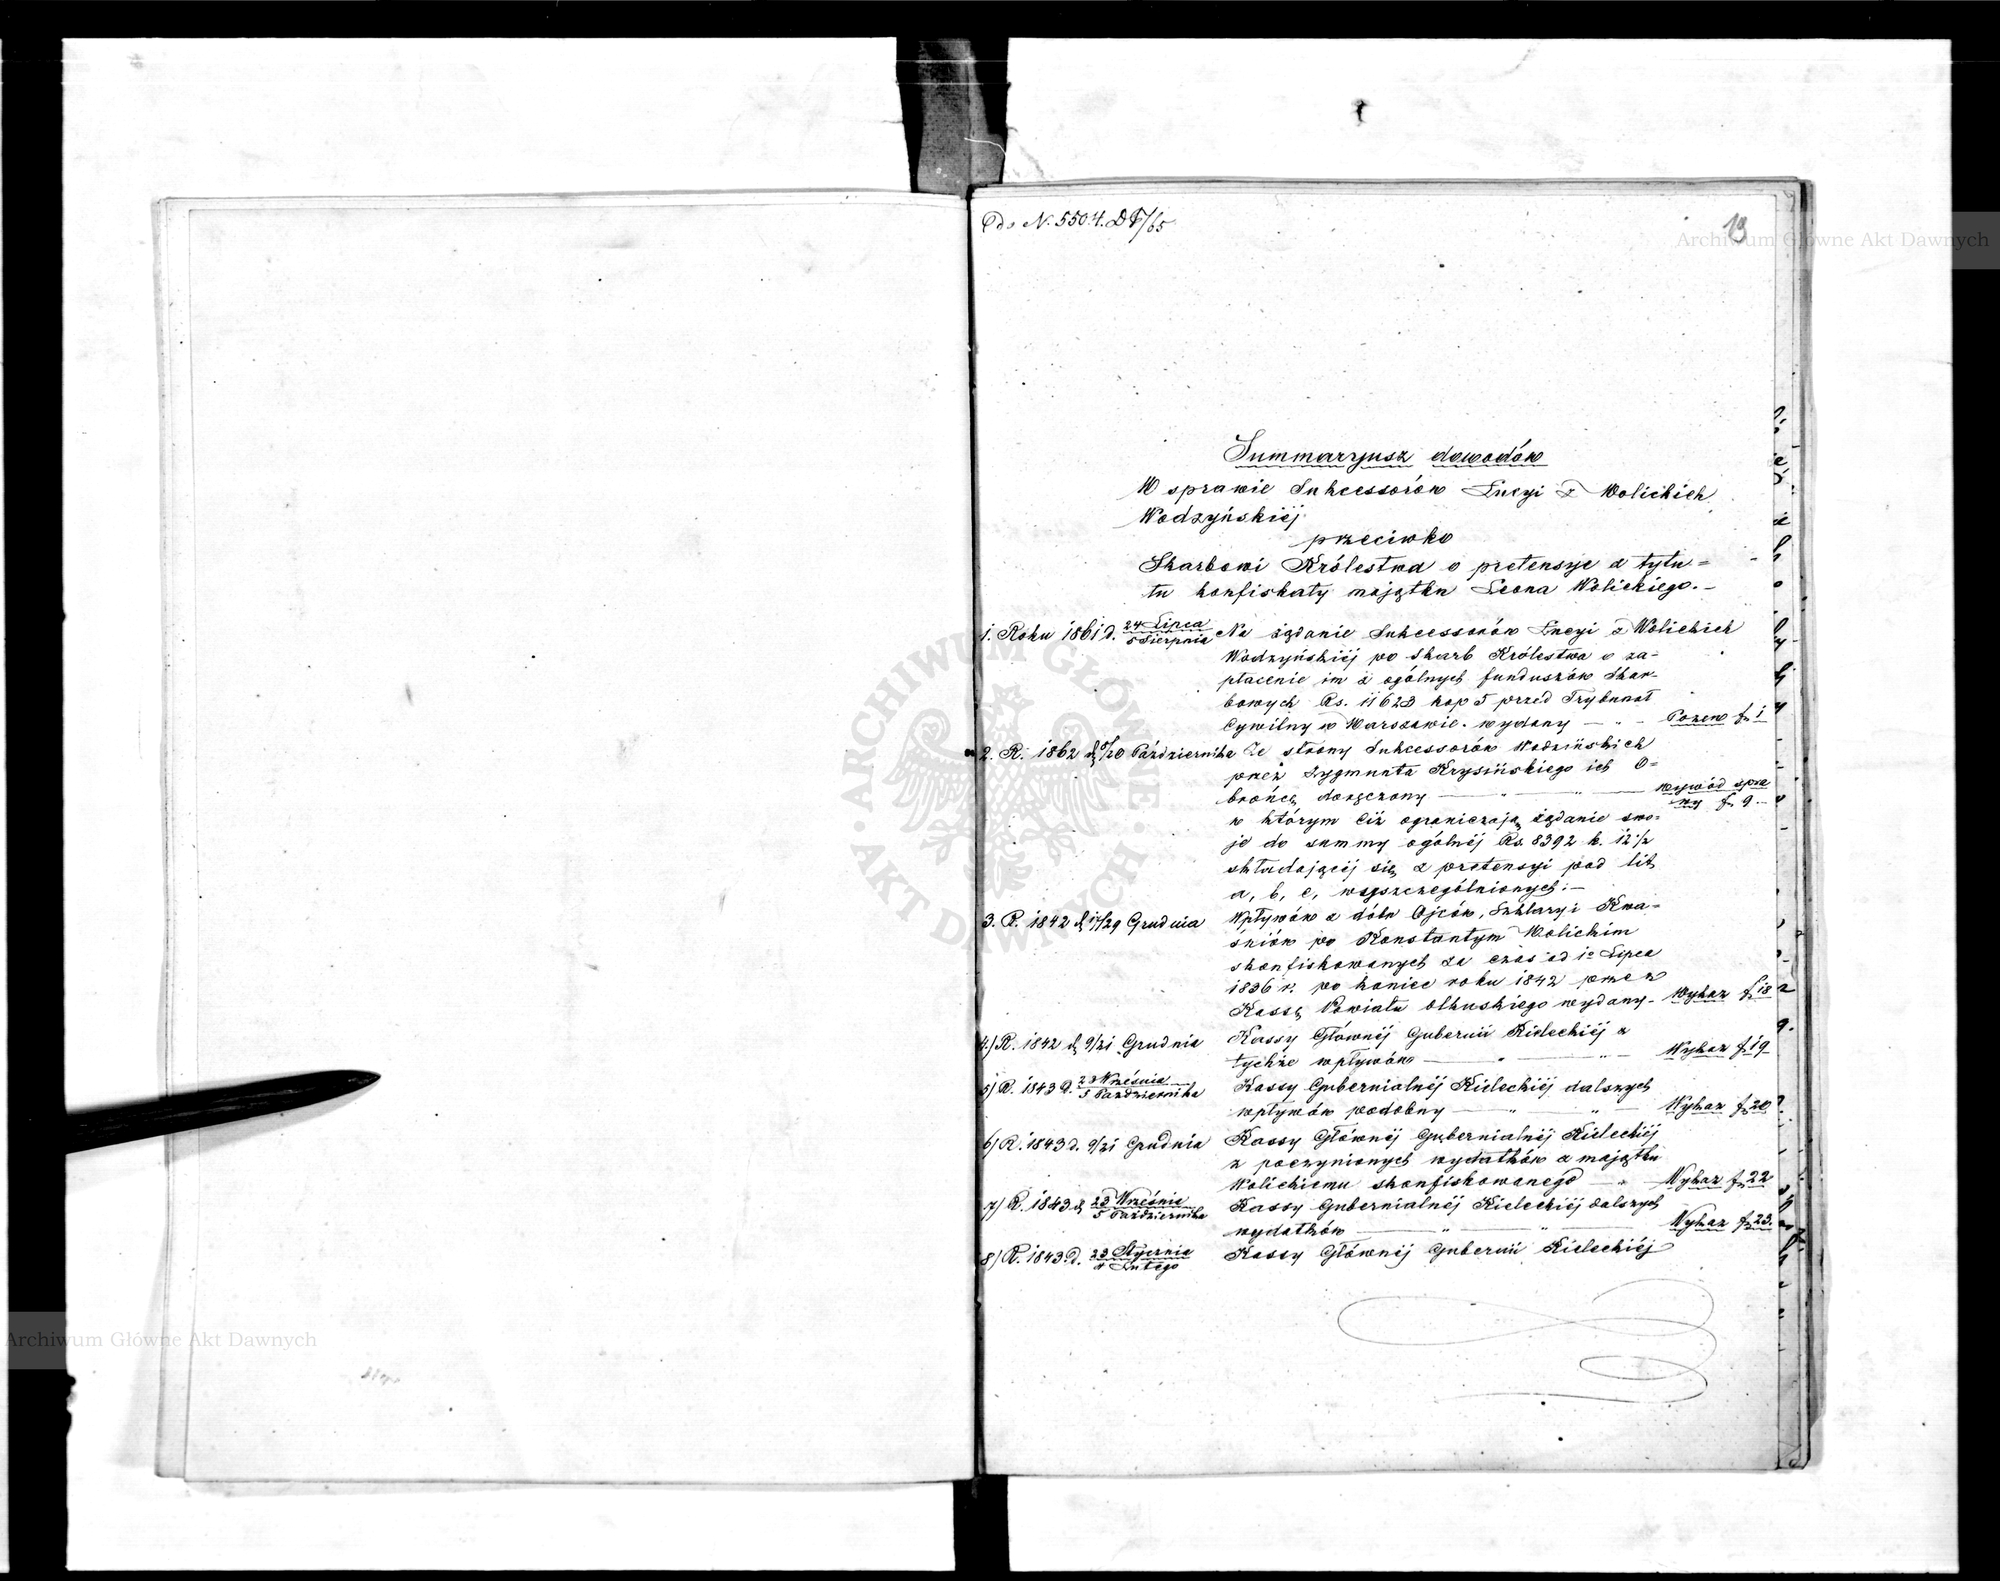 Do N. 5504. DF/65
19
Summaryusz dowodów
W sprawie Sukcessorów Lucyi z Wolickich
Wodzyńskiéj
przeciwko
Skarbowi Królestwa o pretensye z tytu=
łu konfiskaty majątku Leona Wolickiego. –
1. Roku 1861 d. 24 Lipca / 5 Sierpnia Na żądanie Sukcessorów Lucyi z Wolickich
Wodzyńskiéj po Skarb Królestwa o za-
płacenie im z ogólnych funduszów Skar-
bowych Rs. 11623 kop 5 przed Trybunał
Cywilny w Warszawie. wydany — „ - Pozew f. 1
2. R. 1862 d. 8/20 Października Ze strony Sukcessorów Wodzińskich
przez Zygmunta Krysińskiego ich O=
brońcę doręczony — „ — „ — Wywód spra
wy f. 9 —
w którym Ciż ograniczają żądanie swo=
je do summy ogólnéj Rs. 8392 k. 12 1/2
składającéj się z pretensyi pod lit.
a, b, c, wyszczególnionych: —
3. R. 1842 d. 17/29 Grudnia Wpływów z dóbr Ojców, Szklary i Kwa=
śniów po Konstantym Wolickim
skonfiskowanych za czas od 1o Lipca
1836 r. po koniec roku 1842 przez
Kassę Powiatu Olkuskiego wydany - Wykaz f. 18
4) R. 1842 d. 9/21 Grudnia Kassy Głównéj Gubernii Kieleckiéj z
tychże wpływów — „ — „ — Wykaz f. 19
5) R. 1843 d. 23 Września / 5 Października Kassy Gubernialnéj Kieleckiéj dalszych
wpływów podobny — „ — „ — Wykaz f. 20
6) R. 1843 d. 9/21 Grudnia Kassy Głównéj Gubernialnéj Kieleckiéj
z poczynionych wydatków z majątku
Wolickiemu skonfiskowanego — „ — Wykaz f. 22
7) R. 1843 d. 23 Września / 5 Października Kassy Gubernialnéj Kieleckiéj dalszych
wydatków — „ — „ — Wykaz f. 23.
8) R. 1843 d. 23 Stycznia / 4 Lutego Kassy Głównéj Gubernii Kieleckiéj
ARCHIWUM GŁÓWNE AKT DAWNYCH
Archiwum Główne Akt Dawnych
Archiwum Główne Akt Dawnych